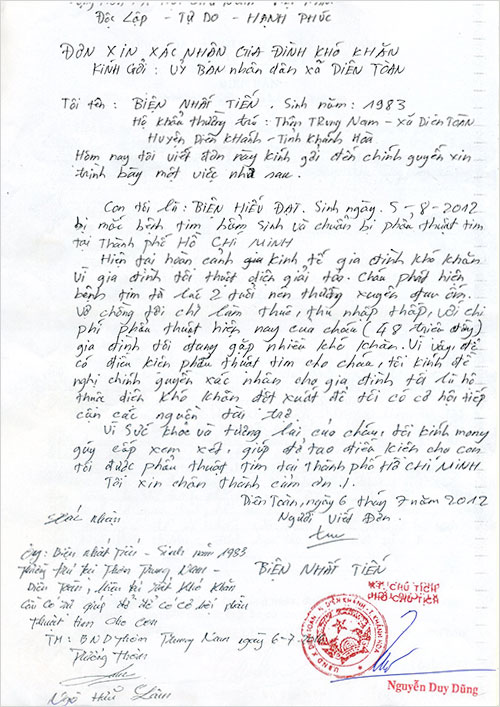 Độc Lập - Tự DO - HẠNH PHÚC
ĐƠN XIN XÁC NHẬN GIA ĐÌNH KHÓ KHĂN
KÍNH GỞI : UỶ BAN nhân dân xã DIÊN TOÀN
Tôi tên : BIỆN NHẤT TIẾN . Sinh năm : 1983
Hộ khẩu thường trú : Thôn Trung Nam - Xã Diên Toàn
Huyện Diên Khánh - Tỉnh Khánh Hòa
Hôm nay tôi viết đơn này kính gởi đến chính quyền xin
trình bày một việc như sau .
Con tôi là : BIỆN HIẾU ĐẠT. Sinh ngày. 5-8-2012
bị mắc bệnh tim bẩm sinh và chuẩn bị phẩu thuật tim
tại Thành phố HỒ CHÍ MINH
Hiện tại hoàn cảnh gia kinh tế gia đình khó khăn
Vì gia đình tôi thuộc diện giải tỏa. Cháu phát hiện
bệnh tim từ lúc 2 tuổi nên thường xuyên đau ốm.
Vợ chồng tôi chỉ làm thuê, thu nhập thấp, với chi
phí phẩu thuật hiện nay của cháu (48 triệu đồng)
gia đình tôi đang gặp nhiều khó khăn. Vì vậy, để
có điều kiện phẩu thuật tim cho cháu, tôi kính đề
nghị chính quyền xác nhận cho gia đình tôi là hộ
thuộc diện khó khăn đột xuất để tôi có cơ hội tiếp
cận các nguồn tài trợ.
Vì sức khỏe và tương lai của cháu, tôi kính mong
quý cấp xem xét, giúp đỡ tạo điều kiện cho con
tôi được phẩu thuật tim tại Thành phố HỒ CHÍ MINH
Tôi xin chân thành cảm ơn .!.
Diên Toàn, ngày 6 tháng 7 năm 2012
Xác nhận
Người Viết Đơn.
Ông: Biện Nhất Tiến - Sinh năm 1983
thường trú tại Thôn Trung Nam -
BIỆN NHẤT TIẾN
Diên Toàn, hiện tại rất khó khăn
cần có sự giúp đỡ để có cơ hội phẩu
thuật tim cho con
TM: BND thôn Trung Nam ngày 6-7-2012
Trưởng thôn
Ngô Hữu Lâm
KT. CHỦ TỊCH
PHÓ CHỦ TỊCH
Nguyễn Duy Dũng